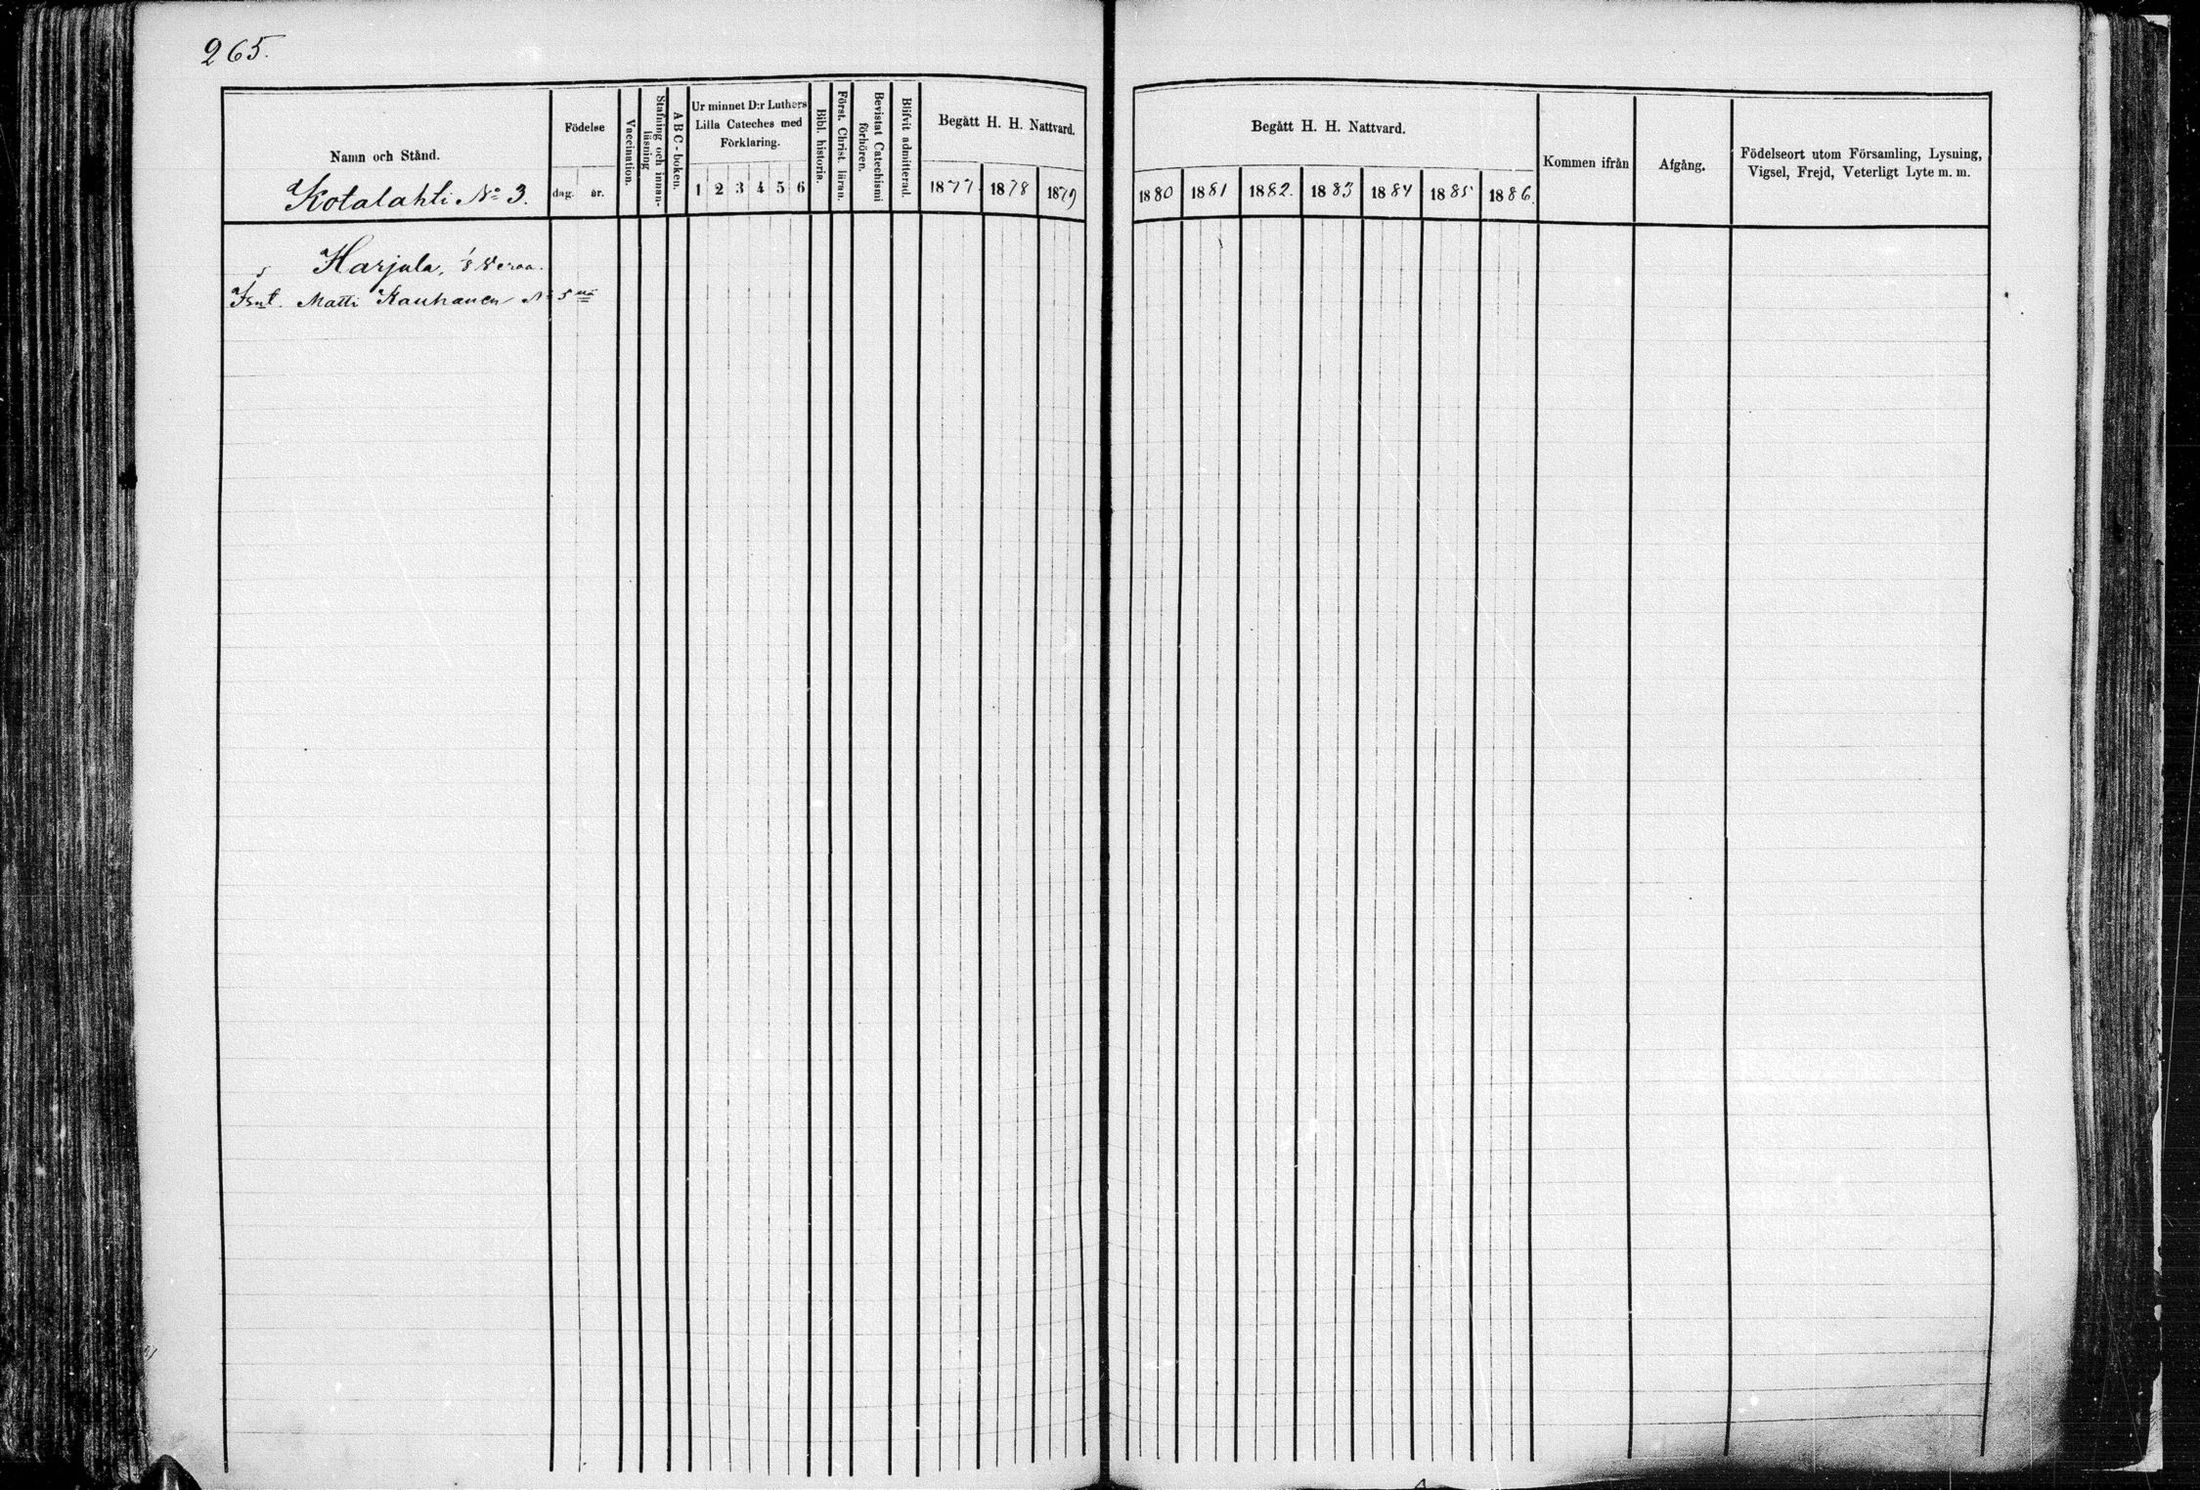 265.
Namn och Stånd.
Kotalahti No 3.
Födelse
dag. år.
Vaccination.
Stafning och innan-
läsning
ABC-boken.
Ur minnet D:r Luthers
Lilla Cateches med
Förklaring.
1 2 3 4 5 6
Bibl. historia.
Först. Christ. läran.
Bevistat Catechismi
förhören.
Blifvit admitterad.
Begått H. H. Nattvard.
1877. 1878 1879
Begått H. H. Nattvard.
1880 1881 1882. 1883 1884 1885 1886.
Kommen ifrån
Afgång.
Födelseort utom Församling, Lysning,
Vigsel, Frejd, Veterligt Lyte m. m.
Harjula,
Matti Kauhanen No 5